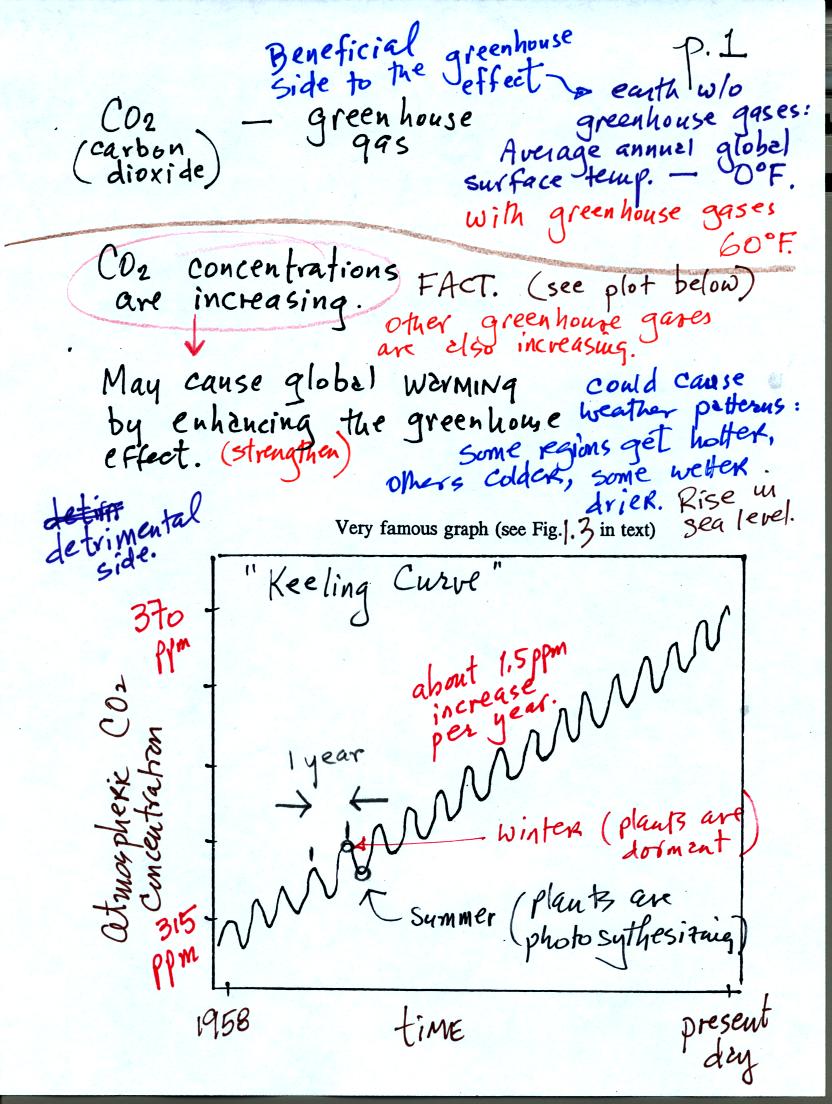 p.1
Beneficial
side to the greenhouse
effect → earth w/o
greenhouse gases:
Average annual global
surface temp. — 0°F.
with greenhouse gases
60°F.
CO2 — greenhouse
gas
(carbon
dioxide)
CO2 concentrations
are increasing.
FACT. (see plot below)
other greenhouse gases
are also increasing.
May cause global WARMING
by enhancing the greenhouse
effect. (strengthen)
could cause
weather patterns:
Some regions get hotter,
others colder, some wetter
drier. Rise in
sea level.
detrimental
side.
Very famous graph (see Fig. 1.3 in text)
"Keeling Curve"
370
ppm
about 1.5ppm
increase
per year.
1 year
Winter (plants are
dormant)
Summer (plants are
photosythesizing)
315
ppm
Atmospheric CO2
Concentration
1958
time
present
day